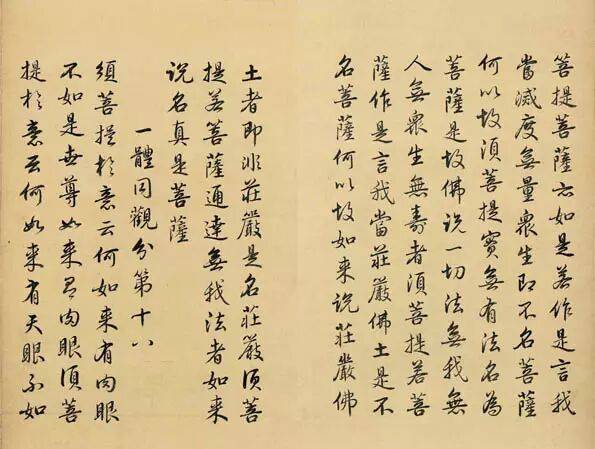 菩提菩薩亦如是若作是言我
當滅度無量衆生即不名菩薩
何以故須菩提實無有法名為
菩薩是故佛說一切法無我無
人無衆生無壽者須菩提若菩
薩作是言我當莊嚴佛土是不
名菩薩何以故如来說莊嚴佛
土者即非莊嚴是名莊嚴須菩
提若菩薩通達無我法者如来
說名真是菩薩
一體同觀分第十八
須菩提於意云何如来有肉眼
不如是世尊如来有肉眼須菩
提於意云何如来有天眼不如